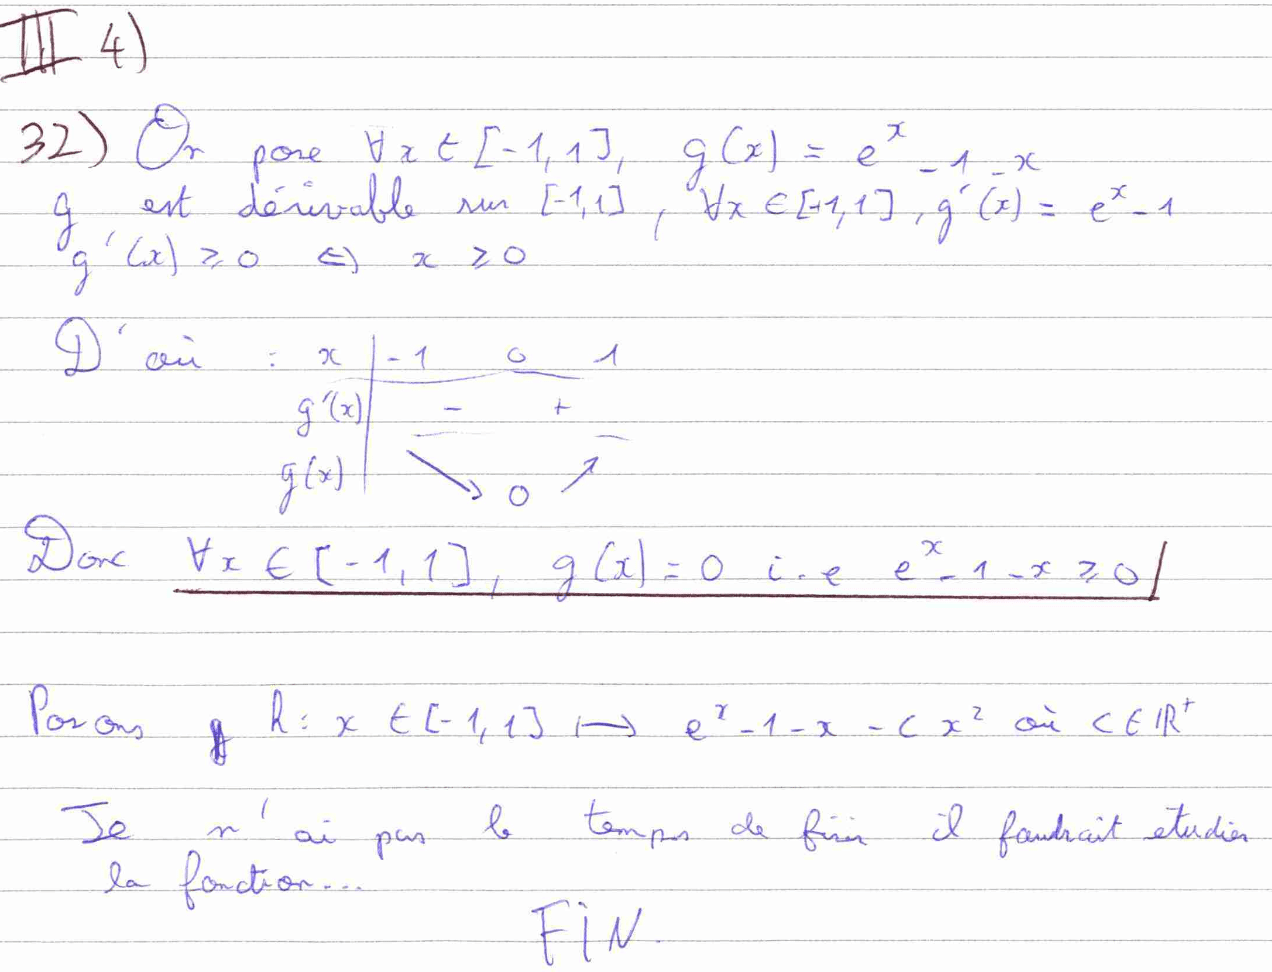 III 4)
32) On pose ∀x ∈ [-1,1], g(x) = eˣ - 1 - x
g est dérivable sur [-1,1], ∀x ∈ [-1,1], g'(x) = eˣ - 1
g'(x) ≥ 0 ⇔ x ≥ 0
D'où : x | -1 0 1
g'(x) | - +
g(x) | ↘ 0 ↗
Donc ∀x ∈ [-1,1], g(x) = 0 i.e eˣ - 1 - x ≥ 0
Posons h: x ∈ [-1,1] ↦ eˣ - 1 - x - c x² où c ∈ ℝ⁺
Je n'ai pas le temps de finir il faudrait etudier
la fonction...
FIN.